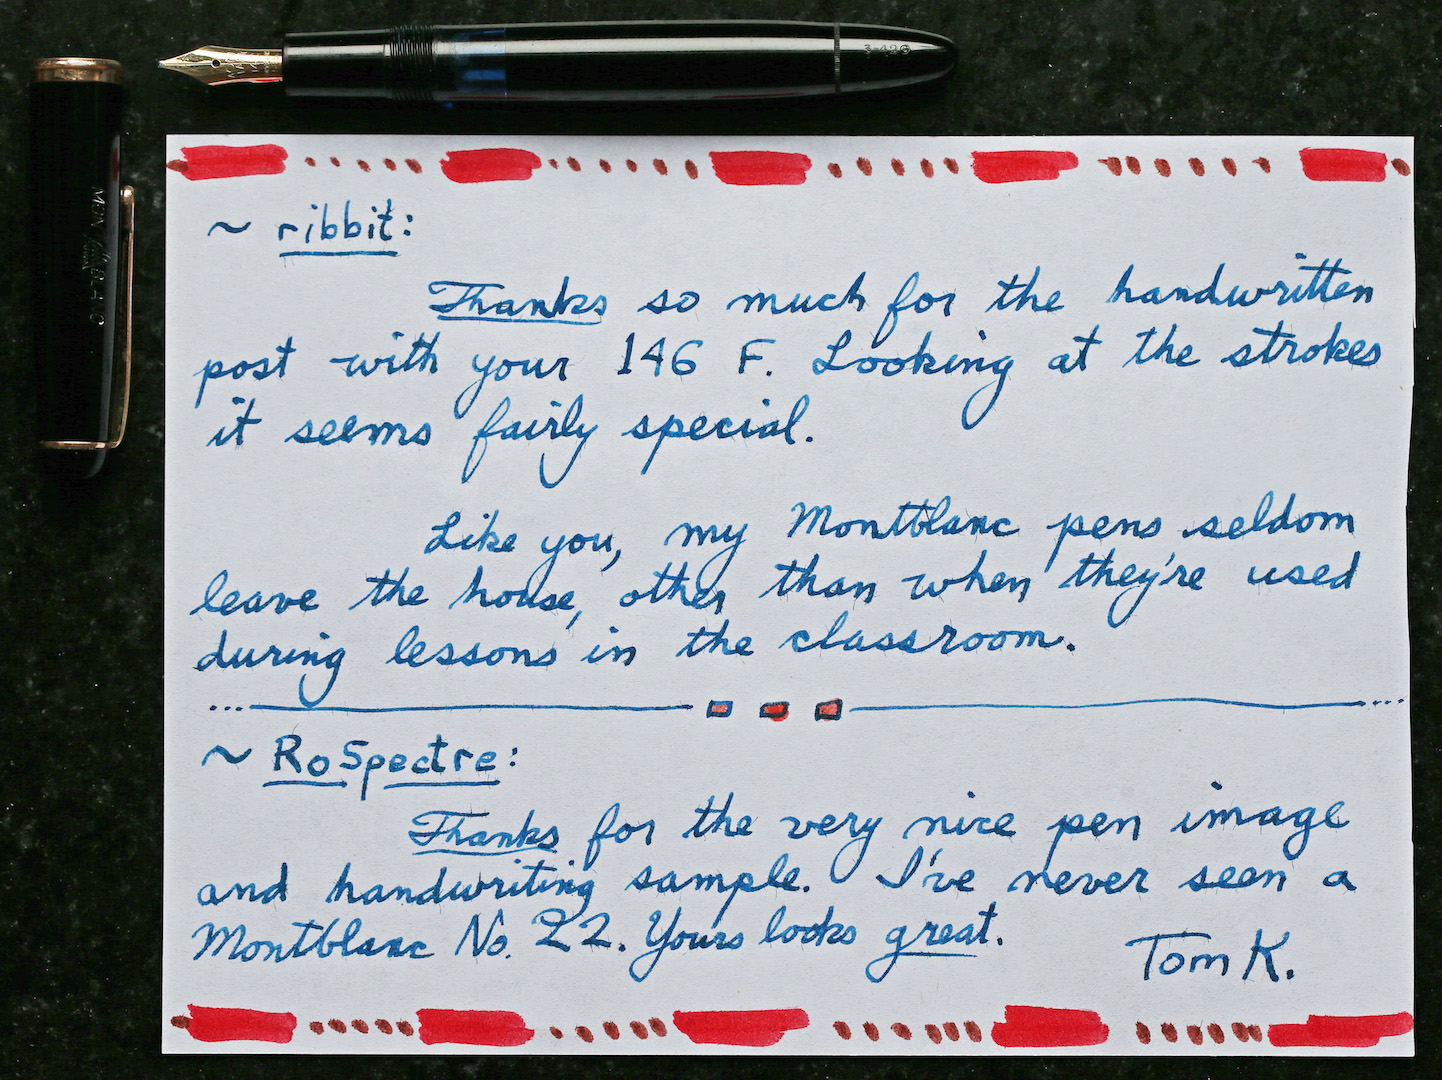 3-42G
MONTBLANC
~ ribbit:
Thanks so much for the handwritten
post with your 146 F. Looking at the strokes
it seems fairly special.
Like you, my Montblanc pens seldom
leave the house, other than when they're used
during lessons in the classroom.
~ RoSpectre:
Thanks for the very nice pen image
and handwriting sample. I've never seen a
Montblanc No. 22. Yours looks great.
Tom K.